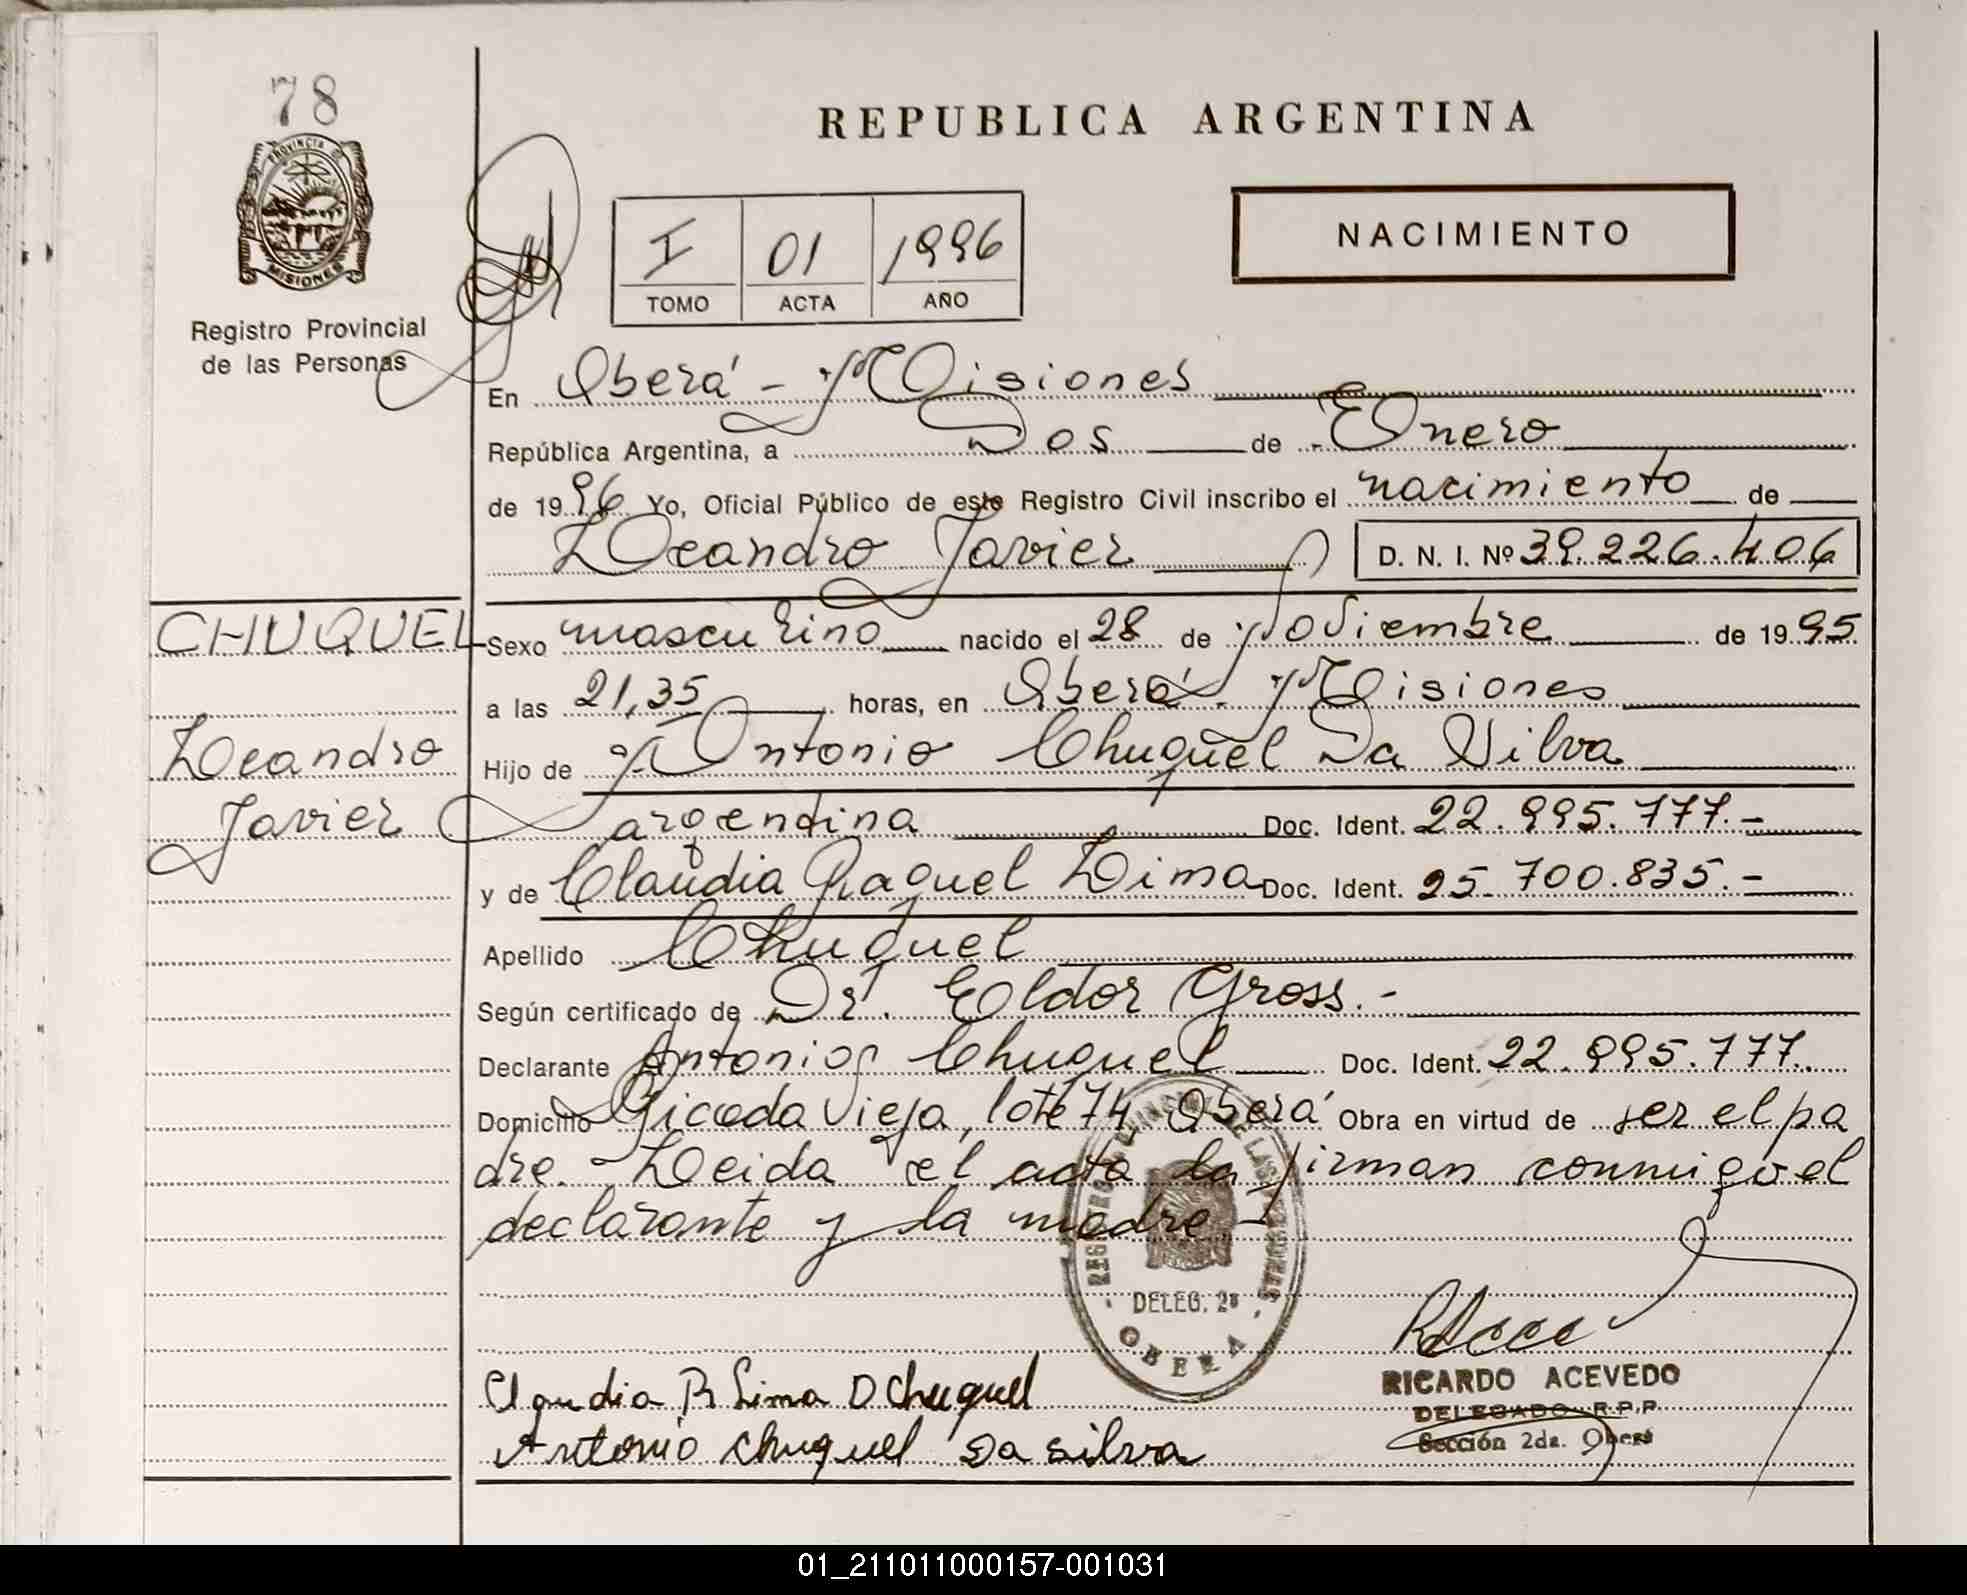 78
PROVINCIA DE
MISIONES
Registro Provincial
de las Personas
REPUBLICA ARGENTINA
I 01 1996
TOMO ACTA AÑO
NACIMIENTO
En Oberá - Misiones
República Argentina, a Dos de Enero
de 1996 Yo, Oficial Público de este Registro Civil inscribo el nacimiento de
Leandro Javier D. N. I. Nº 39.226.406
CHUQUEL
Leandro
Javier
Sexo masculino nacido el 28 de Noviembre de 1995
a las 21,35 horas, en Oberá - Misiones
Hijo de Antonio Chuquel Da Silva
argentina Doc. Ident. 22.995.777.-
y de Claudia Raquel Lima Doc. Ident. 25.700.835.-
Apellido Chuquel
Según certificado de Dr. Eldor Gross.-
Declarante Antonio Chuquel Doc. Ident. 22.995.777.
Domicilio Picada Vieja, lote 74, Oberá Obra en virtud de ser el pa
dre. - Leida el acta la firman conmigo el
declarante y la madre -
DELEG. 2ª
OBERA
Claudia R Lima D Chuquel
Antonio Chuquel Da Silva
RICARDO ACEVEDO
DELEGADO R.P.P
Sección 2da. Oberá
01_211011000157-001031